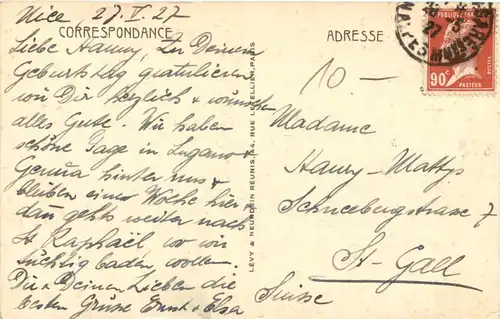 Nice, 27.V.27
CORRESPONDANCE
Liebe Hanny, Zu Deinem
Geburtstag gratulieren
wir Dir herzlich & wünschen
alles Gute. Wir haben
schöne Tage in Lugano &
Genua hinter uns &
bleiben eine Woche hier &
dann gehts weiter nach
St Raphaël wo wir
tüchtig baden wollen.
Dir & Deinen Lieben die
besten Grüsse Ernst & Elsa
LEVY & NEURDEIN REUNIS, 44, RUE LETELLIER, PARIS
ADRESSE
10.—
90c
PASTEUR
Madame
Hanry-Mattys
Schneebergstrasse 7
St-Gall
Suisse